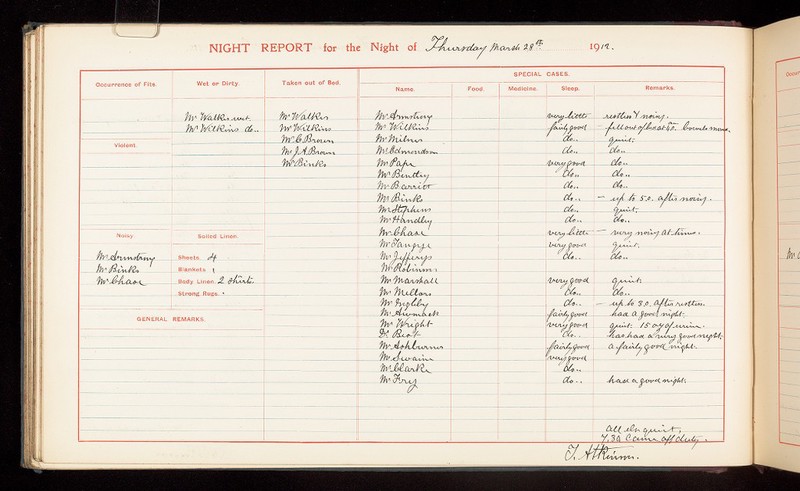 NIGHT REPORT for the Night of Thursday March 28th 1912.
SPECIAL CASES.
Occurrence of Fits. Wet or Dirty. Taken out of Bed. Name. Food. Medicine. Sleep. Remarks.
Mr Walker wet. Mr Walker Mr Armstrong very little restless & noisy.
Mr Wilkins do.. Mr Wilkins Mr Wilkins fairly good - fell out of bed at
Violent. Mr C Brown Mr Milner do.. quiet.
Mr J. A. Brown Mr Edmondson do.. do..
Mr Binks Mr Pape very good do..
Mr Bentley do.. do..
Mr Barriot do.. do..
Mr Binks do.. - up to 5.0. after noisy.
Mr Stephens do.. quiet.
Mr Handley do.. do..
Noisy Soiled Linen. Mr Chase very little - very noisy at times.
Mr Armstrong Sheets. 4 very good quiet.
Mr Binks Blankets 1 Mr Jefferys do.. do..
Mr Chase Body Linen. 2 shirts. Mr Robinson
Strong Rugs. Mr Marshall very good quiet.
Mr Mellors do.. do..
Mr Ingleby do.. - up to 3.0. after restless.
GENERAL REMARKS. fairly good had a good night.
Mr Wright very good quiet. 15 ozs of urine.
Dr do.. has had a very good night.
Mr Ashburner fairly good a fairly good night.
Mr Swain very good
Mr Clarke do..
Mr Fry do.. had a good night.
all else quiet,
7.30 came off duty.
T. Atkinson.